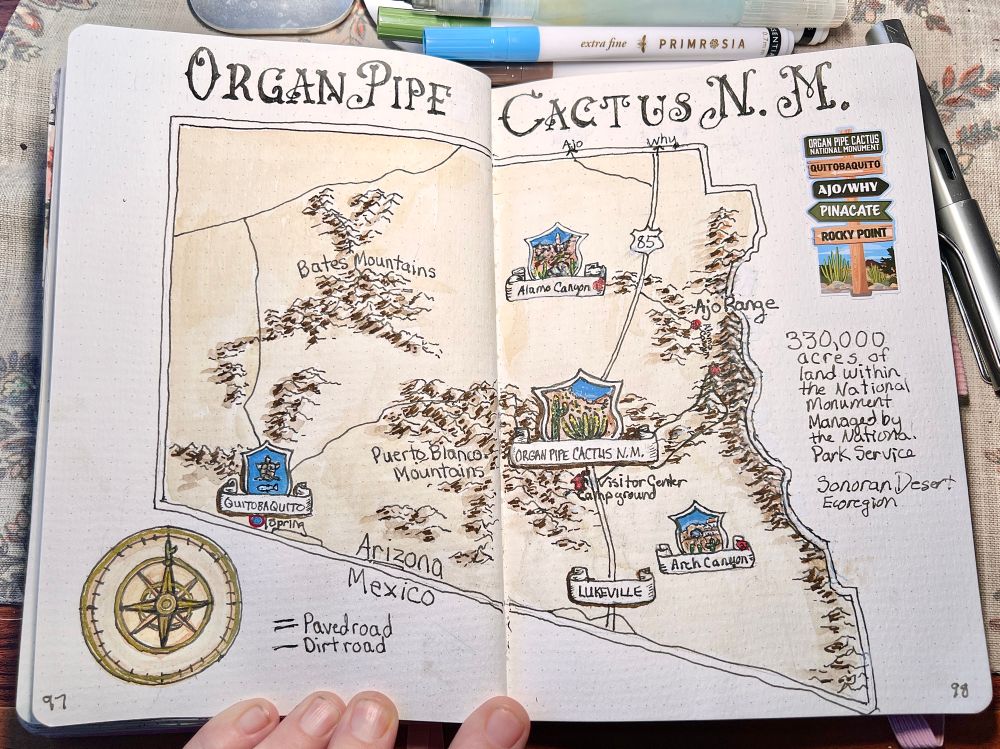 extra fine PRIMROSIA
ORGAN PIPE CACTUS N. M.
Ajo
Why
ORGAN PIPE CACTUS
NATIONAL MONUMENT
QUITOBAQUITO
AJO/WHY
PINACATE
ROCKY POINT
85
Bates Mountains
Alamo Canyon
Ajo Range
330,000
acres of
land within
the National
Monument
Managed by
the National
Park Service
Sonoran Desert
Ecoregion
ORGAN PIPE CACTUS N.M.
Puerto Blanco
Mountains
Visitor Center
Campground
QUITOBAQUITO
Spring
Arch Canyon
Arizona
Mexico
LUKEVILLE
= Paved road
— Dirt road
97
98